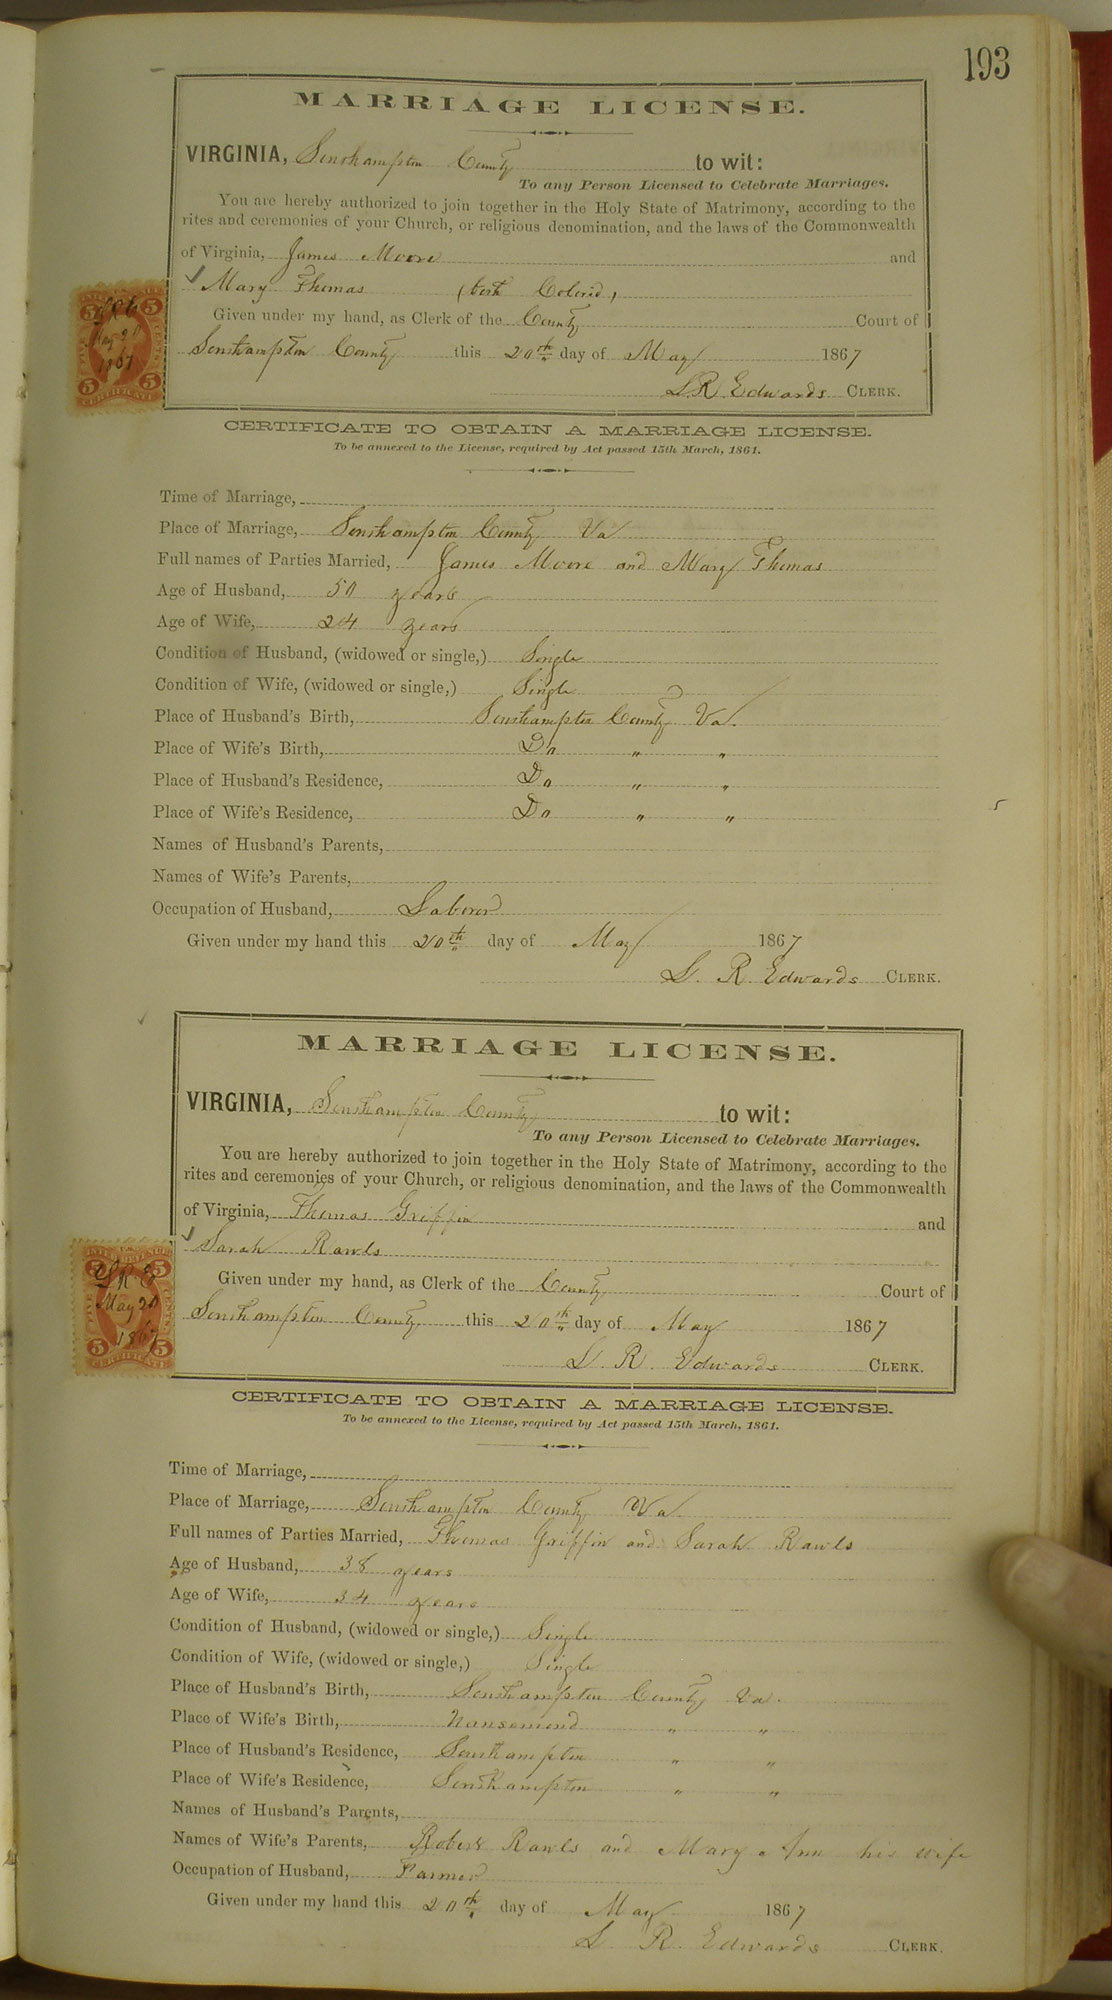 193
MARRIAGE LICENSE.
VIRGINIA, Southampton County to wit:
To any Person Licensed to Celebrate Marriages.
You are hereby authorized to join together in the Holy State of Matrimony, according to the
rites and ceremonies of your Church, or religious denomination, and the laws of the Commonwealth
of Virginia, James Moore and
Mary Thomas (both Colored)
Given under my hand, as Clerk of the County Court of
Southampton County this 20th day of May 1867
L R Edwards CLERK.
5 5
LRE
May 20
1867
5 5
CERTIFICATE
CERTIFICATE TO OBTAIN A MARRIAGE LICENSE.
To be annexed to the License, required by Act passed 15th March, 1861.
Time of Marriage,
Place of Marriage, Southampton County Va
Full names of Parties Married, James Moore and Mary Thomas
Age of Husband, 50 years
Age of Wife, 24 years
Condition of Husband, (widowed or single,) Single
Condition of Wife, (widowed or single,) Single
Place of Husband's Birth, Southampton County Va.
Place of Wife's Birth, Do " "
Place of Husband's Residence, Do " "
Place of Wife's Residence, Do " "
Names of Husband's Parents,
Names of Wife's Parents,
Occupation of Husband, Laborer
Given under my hand this 20th day of May 1867
L. R. Edwards CLERK.
MARRIAGE LICENSE.
VIRGINIA, Southampton County to wit:
To any Person Licensed to Celebrate Marriages.
You are hereby authorized to join together in the Holy State of Matrimony, according to the
rites and ceremonies of your Church, or religious denomination, and the laws of the Commonwealth
of Virginia, Thomas Griffin and
Sarah Rawls
Given under my hand, as Clerk of the County Court of
Southampton County this 20th day of May 1867
L. R. Edwards CLERK.
5 5
LRE
May 20
1867
5 5
CERTIFICATE
CERTIFICATE TO OBTAIN A MARRIAGE LICENSE.
To be annexed to the License, required by Act passed 15th March, 1861.
Time of Marriage,
Place of Marriage, Southampton County Va.
Full names of Parties Married, Thomas Griffin and Sarah Rawls
Age of Husband, 38 years
Age of Wife, 34 years
Condition of Husband, (widowed or single,) Single
Condition of Wife, (widowed or single,) Single
Place of Husband's Birth, Southampton County Va.
Place of Wife's Birth, Nansemond " "
Place of Husband's Residence, Southampton " "
Place of Wife's Residence, Southampton " "
Names of Husband's Parents,
Names of Wife's Parents, Robert Rawls and Mary Ann his wife
Occupation of Husband, Farmer
Given under my hand this 20th day of May 1867
L R. Edwards CLERK.